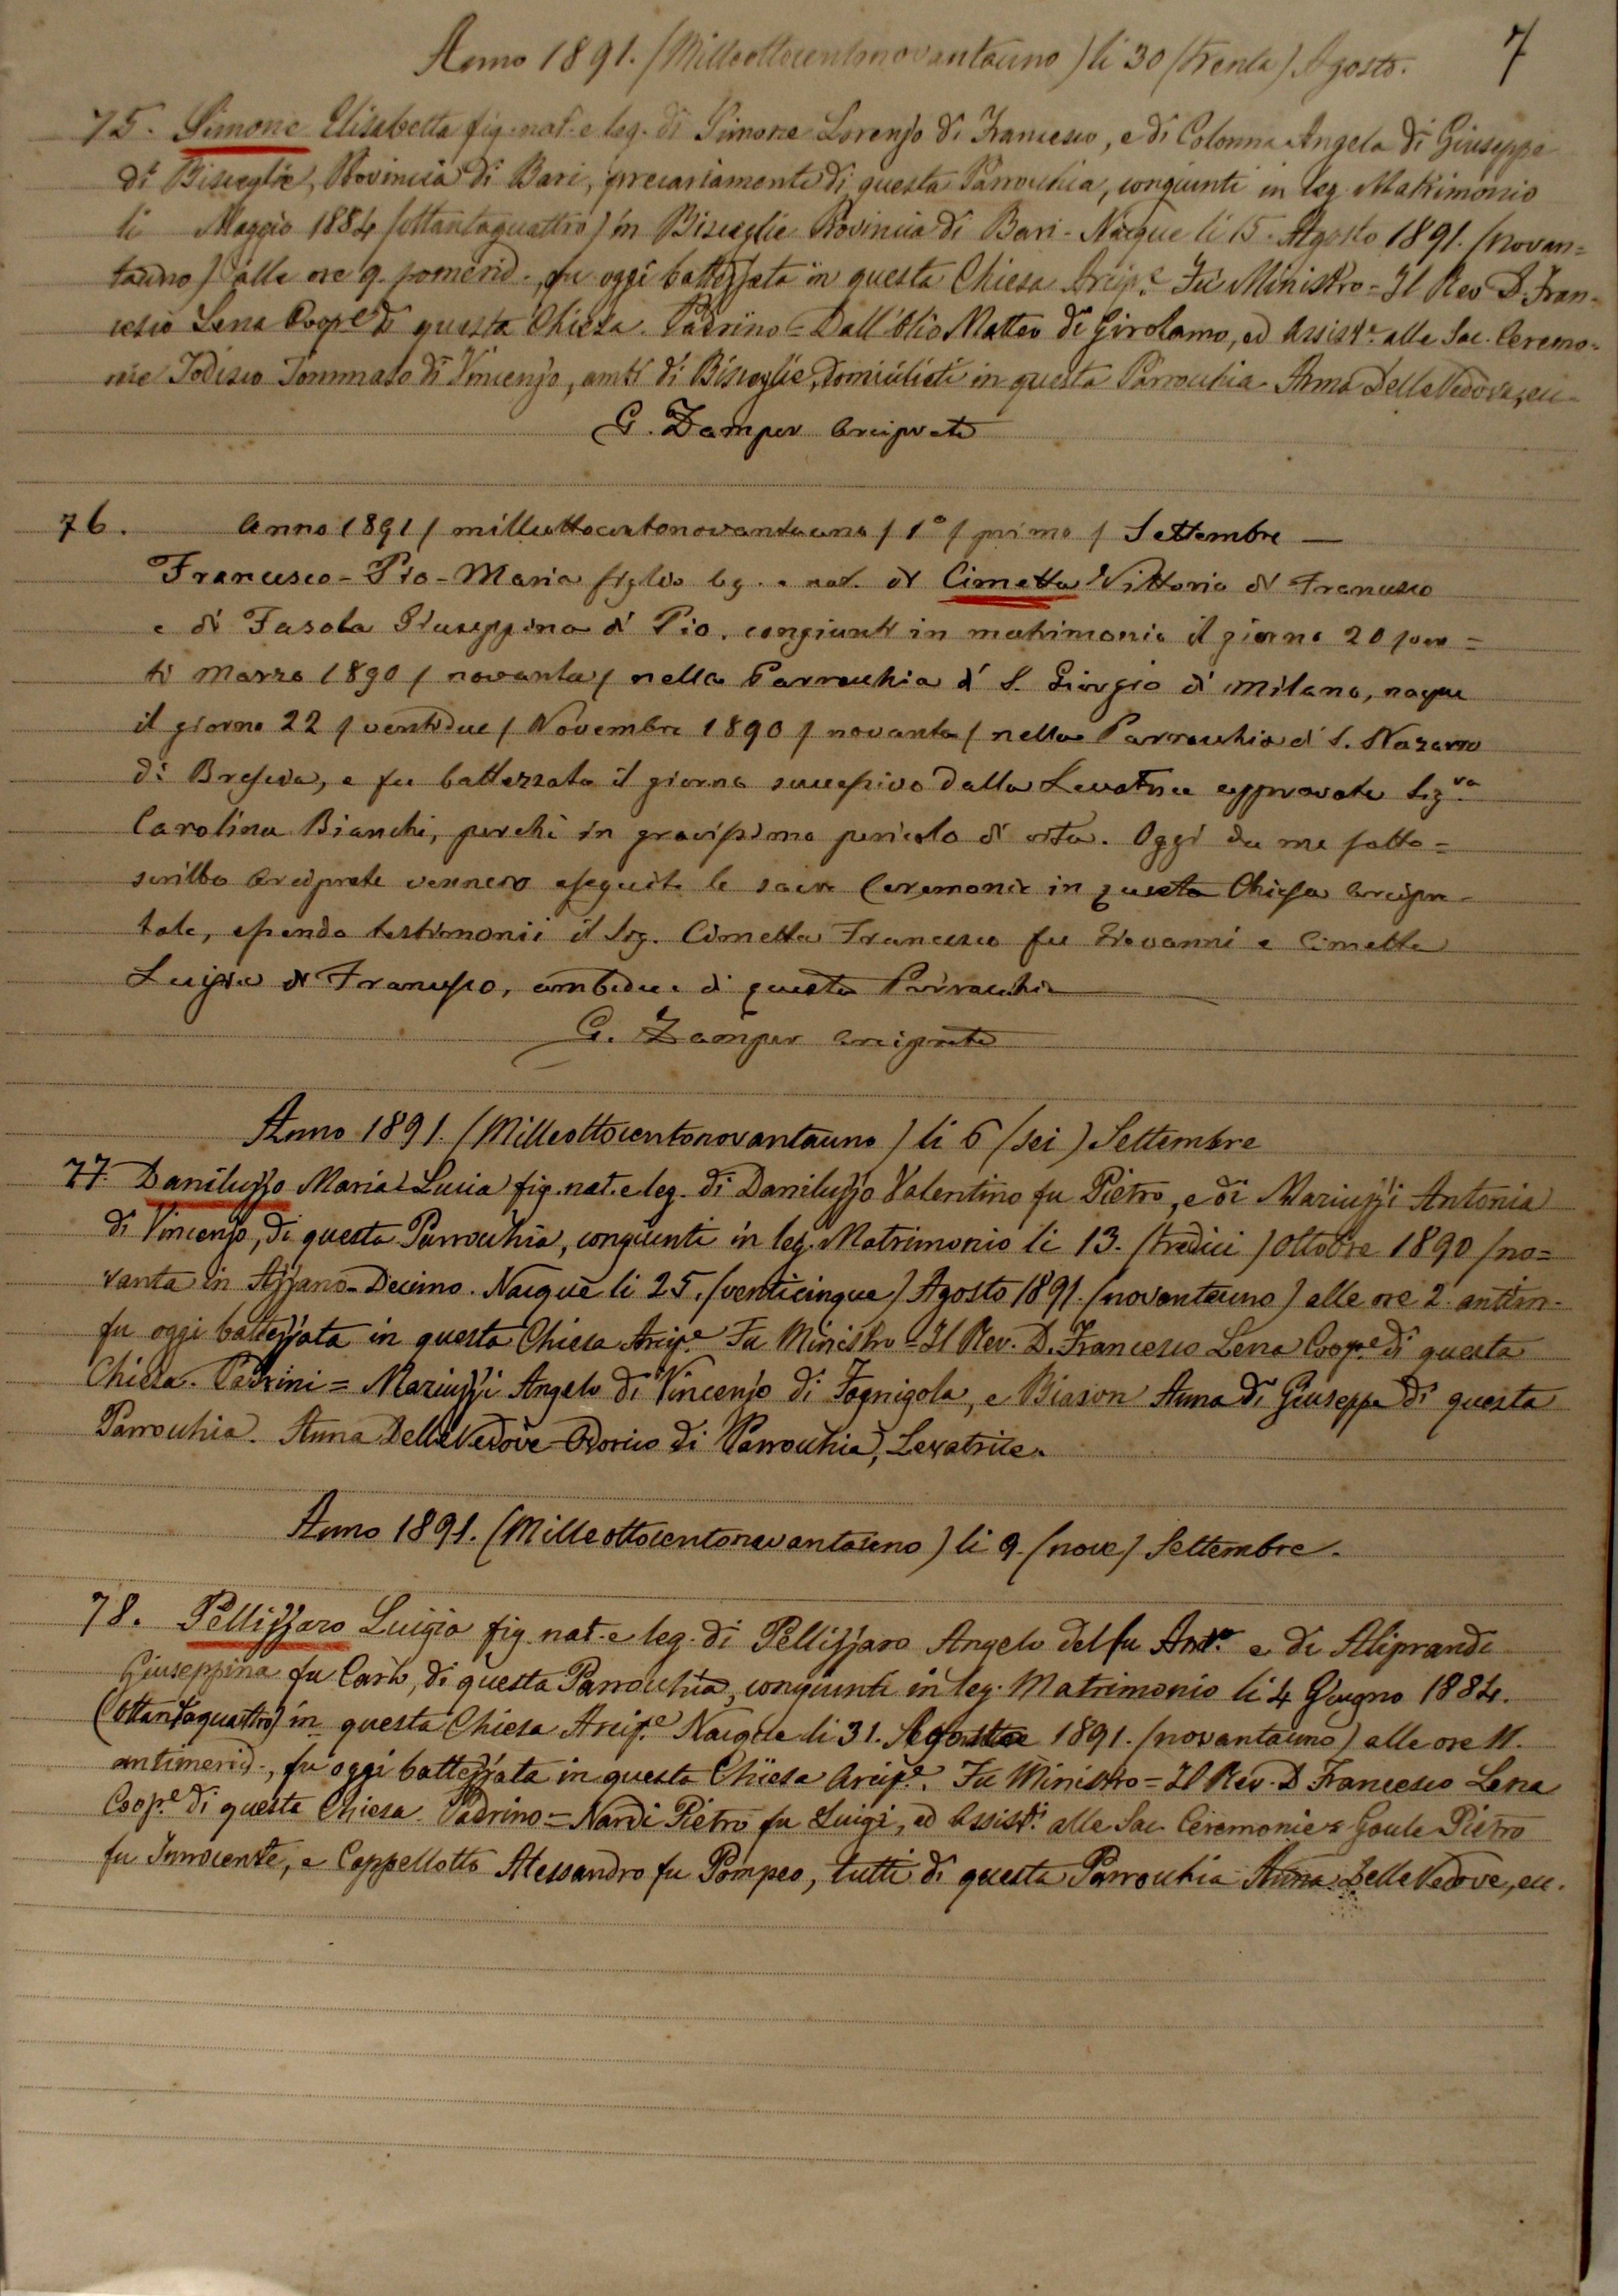 7
Anno 1891. (Milleottocentonovantauno) li 30 (trenta) Agosto.
75. Simone Elisabetta fig. nat. e leg. di Simone Lorenzo di Francesco, e di Colonna Angela di Giuseppe
di Bisceglie, Provincia di Bari, precariamente di questa Parrocchia, congiunti in leg. Matrimonio
li Maggio 1884 (ottantaquattro) in Bisceglie Provincia di Bari - Nacque li 15. Agosto 1891. (novan=
tauno) alle ore 9. pomerid., fu oggi battezzata in questa Chiesa Arcip.e Fu Ministro = Il Rev. D. Fran-
cesco Lena Coop.e di questa Chiesa. Padrino = Dall'Olio Matteo di Girolamo, ed Assist.e alle Sac. Ceremo=
nie Todisco Tommaso di Vincenzo, ambi di Bisceglie, domiciliati in questa Parrocchia. Anna Delle Vedove, ecc.
G. Zamper Arciprete
76. Anno 1891 / milleottocentonovantauno / 1° / primo / Settembre —
Francesco - Pio - Maria figlio leg. e nat. di Cimetta Vittorio di Francesco
e di Fasola Giuseppina di Pio, congiunti in matrimonio il giorno 20 / ven=
ti Marzo 1890 / novanta / nella Parrocchia di S. Giorgio di Milano, nacque
il giorno 22 / ventidue / Novembre 1890 / novanta / nella Parrocchia di S. Nazarro
di Brescia, e fu battezzato il giorno successivo dalla Levatrice approvata Sig.ra
Carolina Bianchi, perchè in gravissimo pericolo di vita. Oggi da me sotto=
scritto Arciprete vennero eseguite le sacre Ceremonie in questa Chiesa Arcipre-
tale, essendo testimonii il Sig. Cimetta Francesco fu Giovanni e Cimetta
Luigia di Francesco, ambedue di questa Parrocchia
G. Zamper Arciprete
Anno 1891. (Milleottocentonovantauno) li 6 (sei) Settembre
77. Daniluzzo Maria Lucia fig. nat. e leg. di Daniluzzo Valentino fu Pietro, e di Mariuzzi Antonia
di Vincenzo, di questa Parrocchia, congiunti in leg. Matrimonio li 13. (tredici) Ottobre 1890 (no=
vanta in Azzano-Decimo. Nacque li 25. (venticinque) Agosto 1891. (novantauno) alle ore 2. antim.
fu oggi battezzata in questa Chiesa Arcip.e Fu Ministro = Il Rev. D. Francesco Lena Coop.e di questa
Chiesa. Padrini = Mariuzzi Angelo di Vincenzo di Fagnigola, e Biason Anna di Giuseppe di questa
Parrocchia. Anna Delle Vedove Odorico di Parrocchia, Levatrice.
Anno 1891. (Milleottocentonovantauno) li 9. (nove) Settembre.
78. Pellizzaro Luigia fig. nat. e leg. di Pellizzaro Angelo del fu Ant.o e di Aliprandi
Giuseppina fu Carlo, di questa Parrocchia, congiunti in leg. Matrimonio li 4 Giugno 1884.
(ottantaquattro) in questa Chiesa Arcip.e Nacque li 31. Agosto 1891. (novantauno) alle ore 11.
antimerid., fu oggi battezzata in questa Chiesa Arcip.e. Fu Ministro = Il Rev. D. Francesco Lena
Coop.e di questa Chiesa. Padrino = Nardi Pietro fu Luigi, ed Assist.i alle Sac. Ceremonie = Pietro
fu Innocente, e Cappellotto Alessandro fu Pompeo, tutti di questa Parrocchia Anna Delle Vedove, ecc.